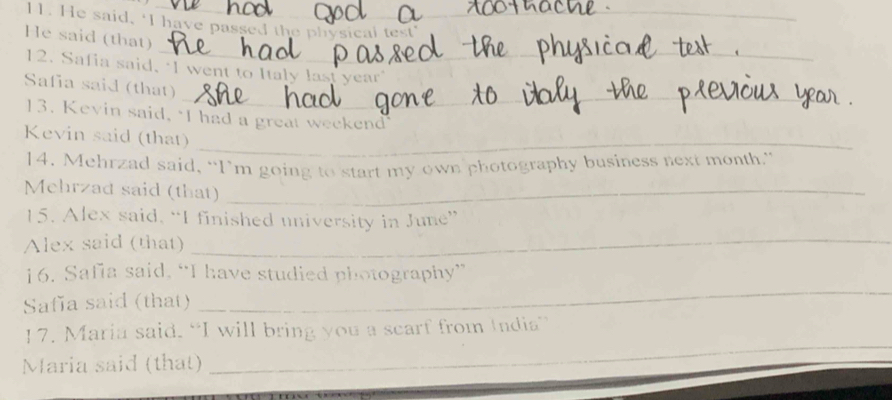 he had god a toothache.
11. He said, 'I have passed the physical test'
He said (that) he had passed the physical test.
12. Safia said, 'I went to Italy last year'
Safia said (that) she had gone to italy the previous year.
13. Kevin said, 'I had a great weekend'
Kevin said (that)
14. Mehrzad said, "I'm going to start my own photography business next month."
Mehrzad said (that)
15. Alex said. "I finished university in June"
Alex said (that)
16. Safia said, "I have studied photography"
Safia said (that)
17. Maria said. "I will bring you a scarf from India"
Maria said (that)